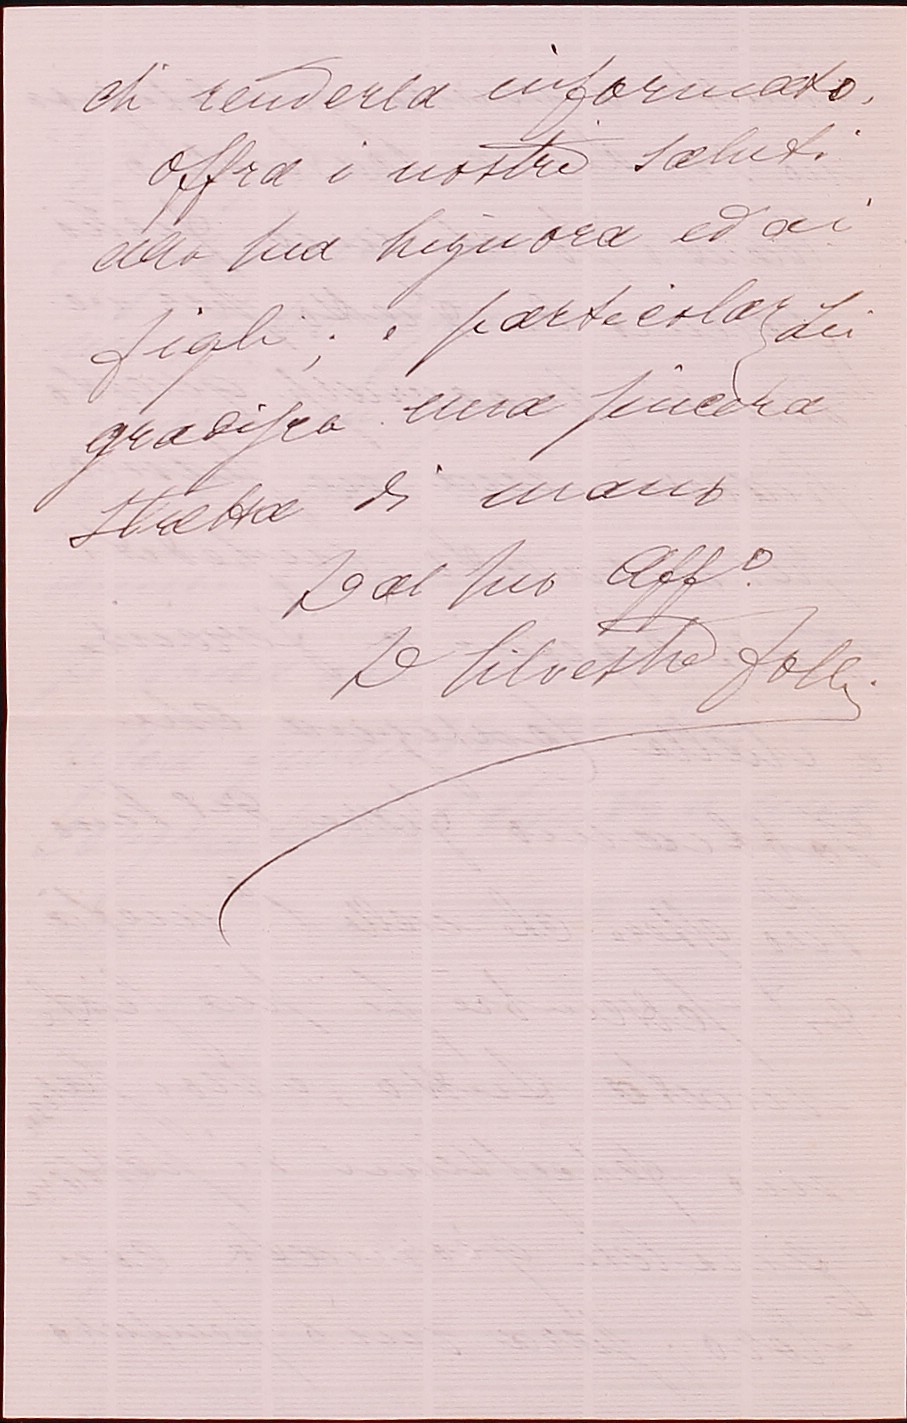 di renderla informato.
Offra i nostri saluti
alla sua signora ed ai
figli; e particolar Lei
gradisca una sincera
stretta di mano
Dal suo Aff.o
D Silvestro